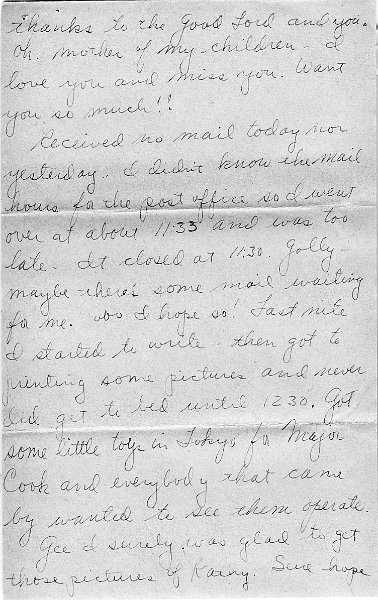 thanks to the Good Lord and you.
Oh mother of my children - I
love you and miss you. Want
you so much!!
Received no mail today nor
yesterday. I didn't know the mail
hours for the post office so I went
over at about 11:35 and was too
late. It closed at 11:30. Golly -
maybe there's some mail waiting
for me. I hope so! Last nite
I started to write - then got to
printing some pictures and never
did get to bed until 1230. Got
some little toys in Tokyo for Major
Cook and everybody that came
by wanted to see them operate.
Gee I surely was glad to get
those pictures of. Sure hope